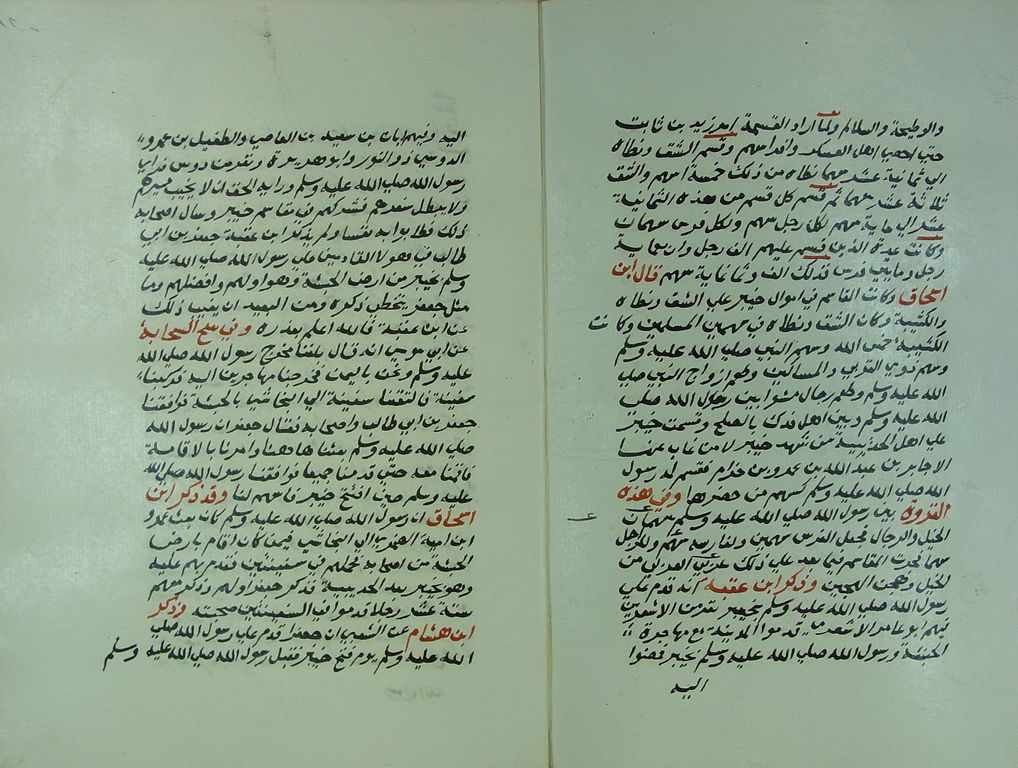 والوطيحة والسلالم ولما اراد القسمة امر زيد بن ثابت
حتى احصى اهل العسكر واقدامهم وقسم الشق ونطاه
الى ثمانية عشر سهما نطاه من ذلك خمسة اسهم والشق
ثلاثة عشر سهما ثم قسم كل قسم من هذه الثمانية
عشر الى ماية سهم لكل رجل سهم ولكل فرس سهمان
وكانت عدة الذين قسم عليهم الف رجل واربعماية
رجل ومايتى فرس فذلك الف وثمانماية سهم قال ابن
اسحاق وكانت المقاسم في اموال خيبر على الشق ونطاه
والكتيبة وكان الشق ونطاه في سهمين المسلمين وكانت
الكتيبة خمس الله وسهم النبي صلى الله عليه وسلم
وسهم ذوى القربى والمساكين وطعم ازواج النبي صلى
الله عليه وسلم وطعم رجال مشوا بين رسول الله صلى
الله عليه وسلم وبين اهل فدك بالصلح وقسمت خيبر
على اهل الحديبية من شهد خيبر لا من غاب عنها
الا جابر بن عبد الله بن عمرو بن حرام فقسم له رسول
الله صلى الله عليه وسلم كسهم من حضرها وفي هذه
الغزوة بين رسول الله صلى الله عليه وسلم سهمان
الخيل والرجال فجعل للفرس سهمين ولفارسه سهم وللراجل
سهما فجرت المقاسم فيما بعد على ذلك عربي العربي من
الخيل وهجن الهجين وذكر ابن عقبة انه قدم على
رسول الله صلى الله عليه وسلم بخيبر نفر من الاشعريين
فيهم ابو عامر الاشعري قدموا المدينة مع مهاجرة
الحبشة ورسول الله صلى الله عليه وسلم بخيبر فمضوا
اليه
اليه وفيهم ابان بن سعيد بن العاصي والطفيل بن عمرو
الدوسي ذو النور وابو هريرة ونفر من دوس فراى
رسول الله صلى الله عليه وسلم ورايه الحق ان لا يخيب مسيرهم
ولا يبطل سفرهم فشركهم في مقاسم خيبر وسال اصحابه
ذلك فطابوا به نفسا ولم يذكر ابن عقبة جعفر بن ابي
طالب في هولا القادمين على رسول الله صلى الله عليه
وسلم بخيبر من ارض الحبشة وهو اولهم وافضلهم وما
مثل جعفر يتخطى ذكره ومن البعيد ان يغيب ذلك
عن ابن عقبة فالله اعلم بعذره وفي صحيح البخاري
عن ابي موسى انه قال بلغنا مخرج رسول الله صلى الله
عليه وسلم ونحن باليمن فخرجنا مهاجرين اليه فركبنا
سفينة فالقتنا سفينة الى النجاشي بالحبشة فوافقنا
جعفر بن ابي طالب واصحابه فقال جعفر ان رسول الله
صلى الله عليه وسلم بعثنا هاهنا وامرنا بالاقامة
فاقمنا معه حتى قدمنا جميعا فوافقنا رسول الله صلى الله
عليه وسلم حين افتتح خيبر فاسهم لنا وقد ذكر ابن
اسحاق ان رسول الله صلى الله عليه وسلم كان بعث عمرو
ابن امية الضمري الى النجاشي فيمن كان اقام بارض
الحبشة من اصحابه فحملهم في سفينتين فقدم بهم عليه
وهو بخيبر بعد الحديبية فذكر جعفرا اولهم وذكر معهم
ستة عشر رجلا قدموا في السفينتين صحبته وذكر
ابن هشام عن الشعبي ان جعفرا قدم على رسول الله صلى
الله عليه وسلم يوم فتح خيبر فقبل رسول الله صلى الله عليه وسلم